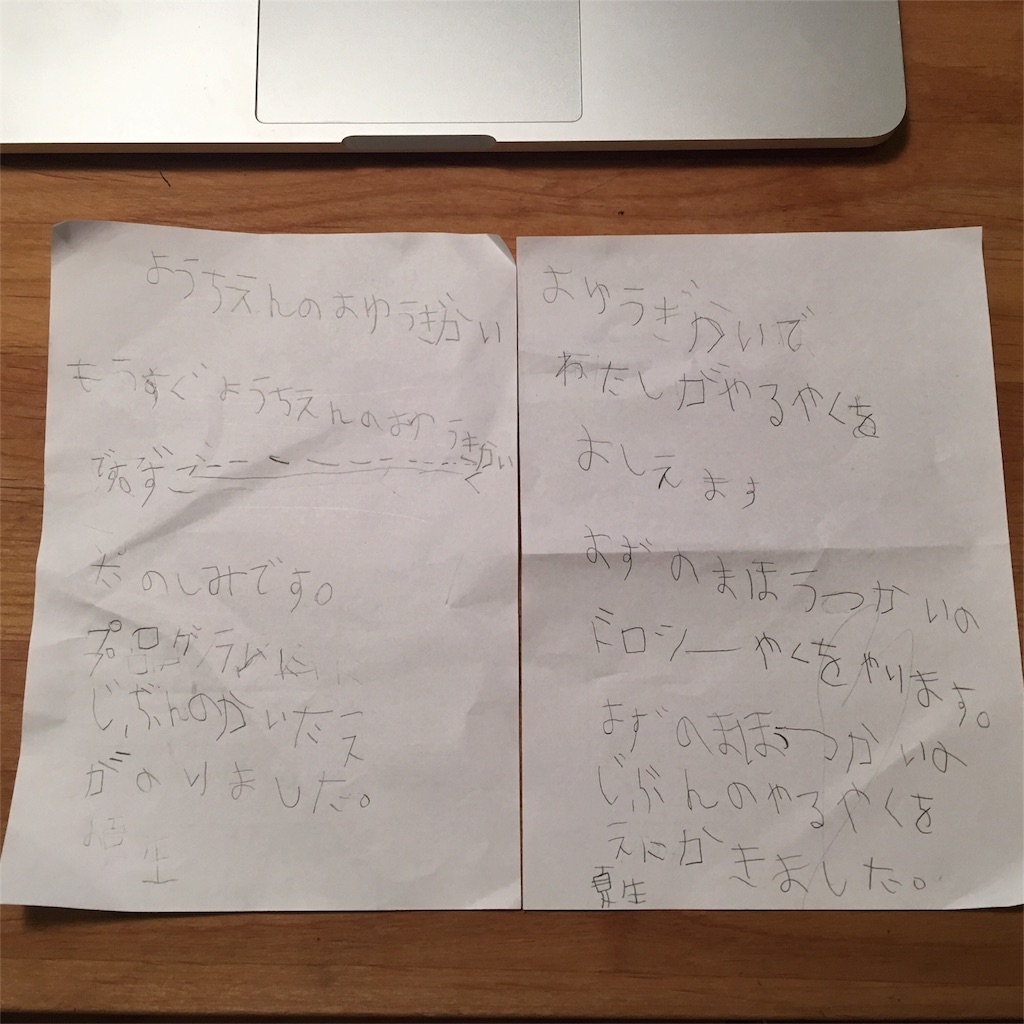 ようちえんのおゆうぎかい
もうすぐようちえんのおゆうぎかい
です。
たのしみです。
プログラムに
じぶんのかいたえ
がのりました。
生
おゆうぎかいで
わたしがやるやくを
おしえます
おずのまほうつかいの
ドロシーやくをやります。
おずのまほうつかいの
じぶんのやるやくを
えにかきました。
夏生